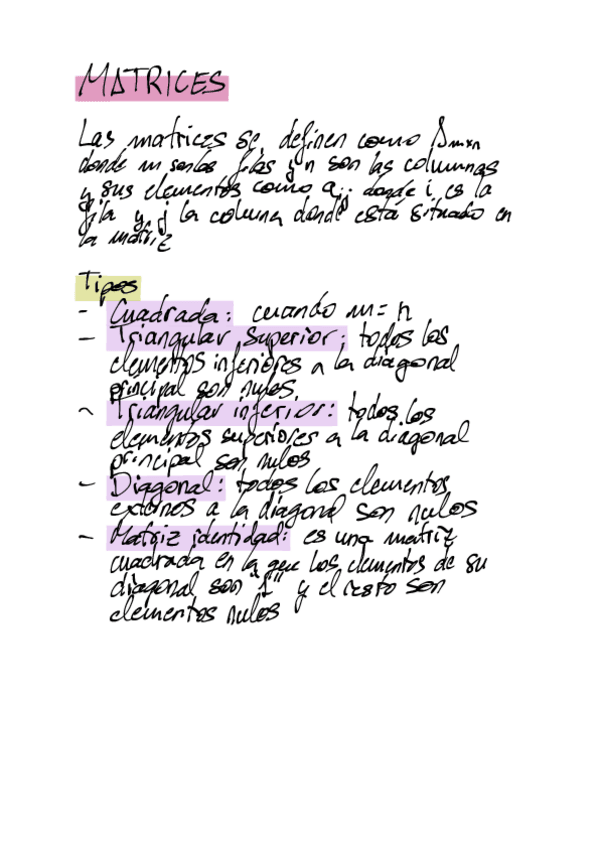 MATRICES
Las matrices se definen como Amxn
donde m son las filas y n son las columnas
y sus elementos como aij donde i es la
fila y j la columna donde está situado en
la matriz
Tipos
- Cuadrada: cuando m = n
- Triangular Superior: todos los
elementos inferiores a la diagonal
principal son nulos.
- Triangular inferior: todos los
elementos superiores a la diagonal
principal son nulos
- Diagonal: todos los elementos
externos a la diagonal son nulos
- Matriz identidad: es una matriz
cuadrada en la que los elementos de su
diagonal son "1" y el resto son
elementos nulos